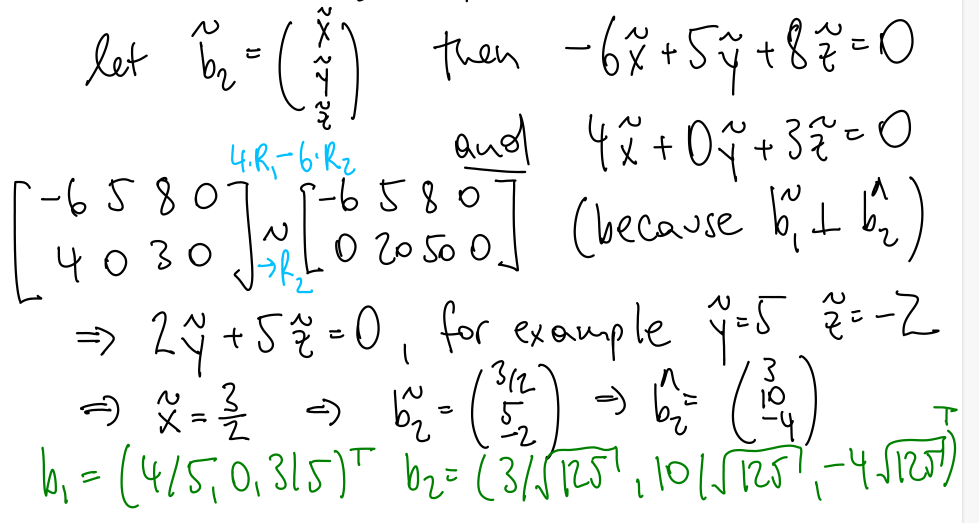 let b̃₂ = (x̃ ỹ z̃) then −6x̃ + 5ỹ + 8z̃ = 0
and 4x̃ + 0ỹ + 3z̃ = 0
4·R₁−6·R₂
[−6 5 8 0 ~ [−6 5 8 0
4 0 3 0] →R₂ 0 20 50 0] (because b̃₁ ⊥ b̂₂)
⇒ 2ỹ + 5z̃ = 0, for example ỹ=5 z̃=−2
⇒ x̃ = 3/2 ⇒ b̃₂ = (3/2 5 −2) ⇒ b̂₂ = (3 10 −4)
b₁ = (4/5, 0, 3/5)ᵀ b₂ = (3/√125, 10/√125, −4√125)ᵀ